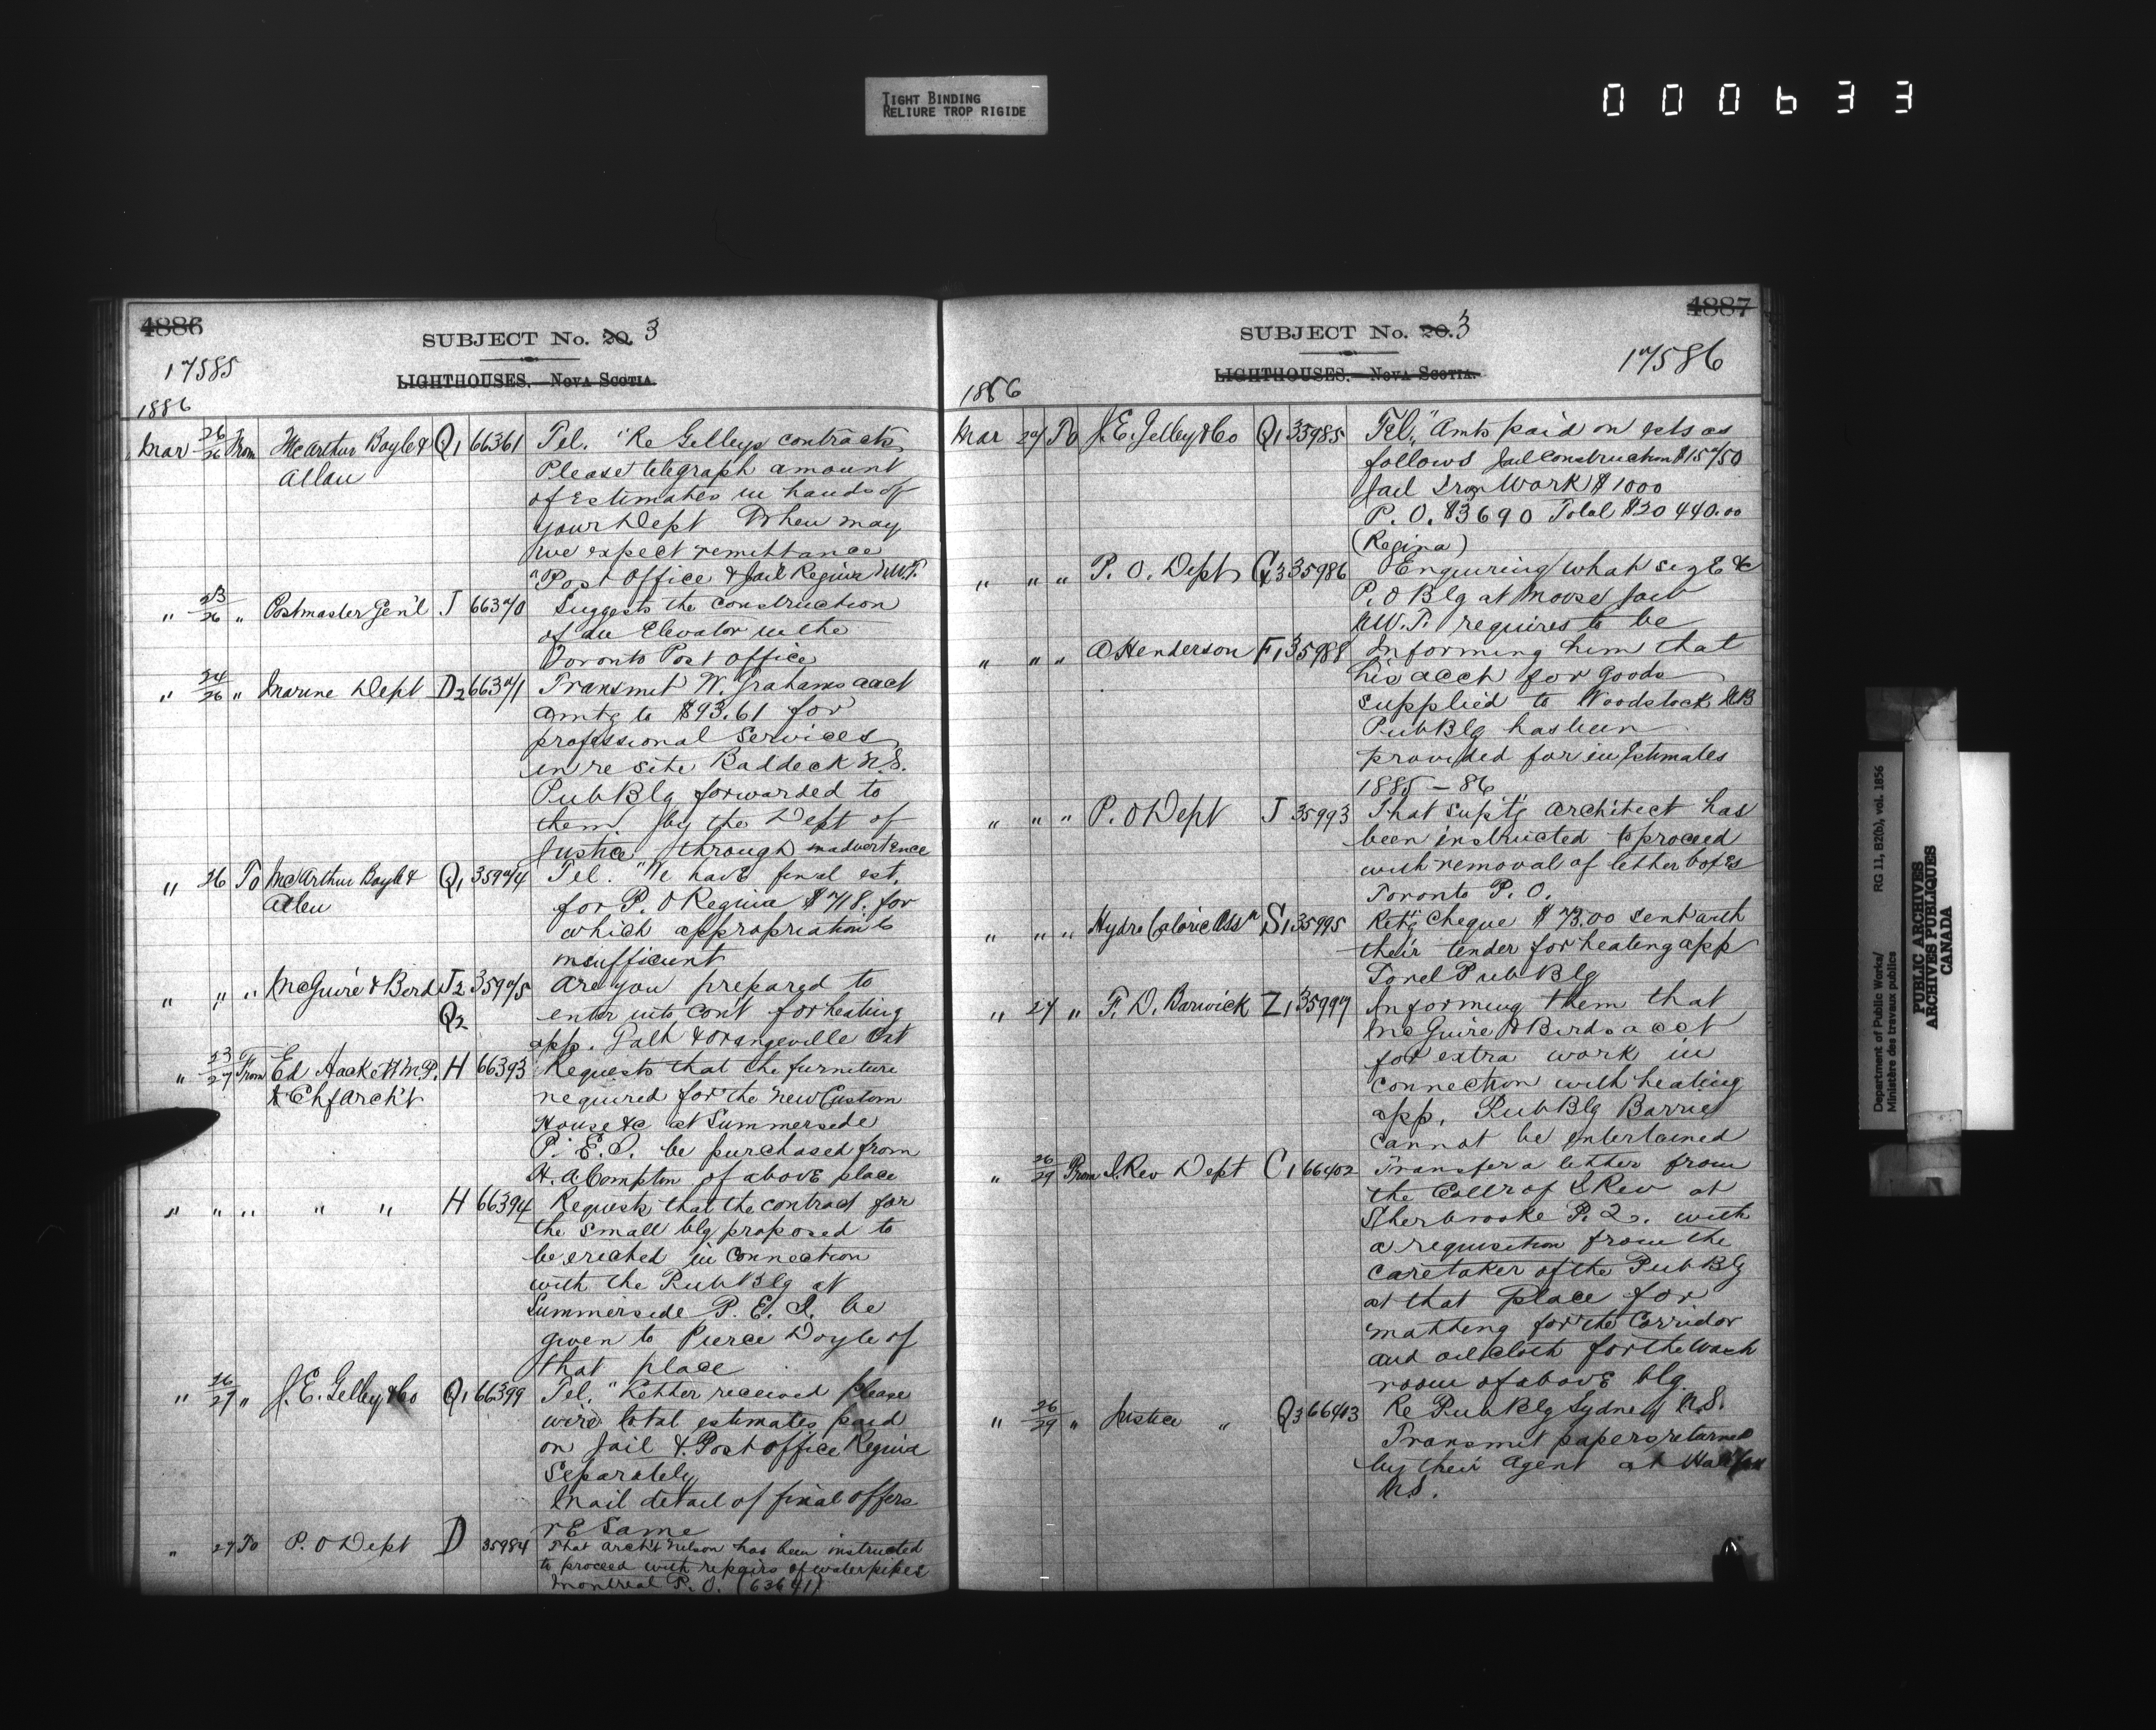 TIGHT BINDING
RELIURE TROP RIGIDE
000633
4886
SUBJECT No. 20. 3
17585
LIGHTHOUSES. - NOVA SCOTIA.
1886
Mar 26/26 From McArthur Boyle & Allan Q1 66361 Tel. "Re Gelleys contracts
Please telegraph amount
of Estimates in hands of
your Dept When may
we expect remittance
"Post Office & Jail Regina N.W.T.
" 23/26 " Postmaster Gen'l J 66370 Suggests the construction
of an Elevator in the
Toronto Post office
" 24/26 " Marine Dept D2 66371 Transmit W. Grahams acct
amtg to $93.61 for
professional services
in re site Baddeck N.S.
Pub Blg forwarded to
them by the Dept of
Justice through inadvertence
" 26 To McArthur Boyle & Allen Q1 35974 Tel. "We have final est.
for P.O Regina $718. for
which appropriation is
insufficient
" " " McGuire & Bird J2 Q2 35975 Are you prepared to
enter into cont for heating
app. Galt & Orangeville Ont
" 23/27 From Ed Hackett M.P. & Chf Arch't H 66393 Requests that the furniture
required for the new Custom
House &c at Summerside
P. E. I. be purchased from
H. A. Compton of above place
" " " " " H 66394 Requests that the contract for
the small blg proposed to
be erected in connection
with the Pub Blg at
Summerside P. E. I. be
given to Pierce Doyle of
that place
" 26/27 " J. E. Gelley & Co Q1 66399 Tel. "Letter received please
wire total estimates paid
on Jail & Post office Regina
separately
Mail detail of final offers
re same
" 27 To P. O Dept D 35984 That Archt Nelson has been instructed
to proceed with repairs of waterpipes
Montreal P. O. (63641)
4887
SUBJECT No. 20. 3
17586
LIGHTHOUSES. - NOVA SCOTIA.
1886
Mar 27 To J. E. Jelley & Co Q1 35985 Tel. "Amts paid on ests as
follows Jail Construction $15750
Jail Iron Work $1000
P. O. $3690 Total $20440.00
(Regina)
" " " P. O. Dept G3 35986 Enquiring what size &c
P. O Blg at Moose Jaw
N.W.T. requires to be
" " " A Henderson F1 35988 Informing him that
his acct for goods
supplied to Woodstock NB
Pub Blg has been
provided for in Estimates
1885 - 86
" " " P. O Dept J 35993 That Supt'g Architect has
been instructed to proceed
with removal of letter boxes
Toronto P. O.
" " " Hydro Caloric Ass'n S1 35995 Ret'g Cheque $73.00 sent with
their tender for heating app
Sorel Pub Blg
" 27 " F. D. Barwick Z1 35997 Informing them that
McGuire & Birds acct
for extra work in
connection with heating
app. Pub Blg Barrie
cannot be entertained
" 26/29 From I. Rev Dept C1 66402 Transfer a letter from
the Collr of I Rev at
Sherbrooke P. Q. with
a requisition from the
Caretaker of the Pub Blg
at that place for
matting for the Corridor
and oil cloth for the wash
room of above blg
" 26/29 " Justice " Q3 66413 Re Pub Blg Sydney N.S.
Transmit papers returned
by their agent at Halifax
N.S.
Department of Public Works/ RG 11, B2(b), vol. 1856
Ministère des travaux publics
PUBLIC ARCHIVES
ARCHIVES PUBLIQUES
CANADA